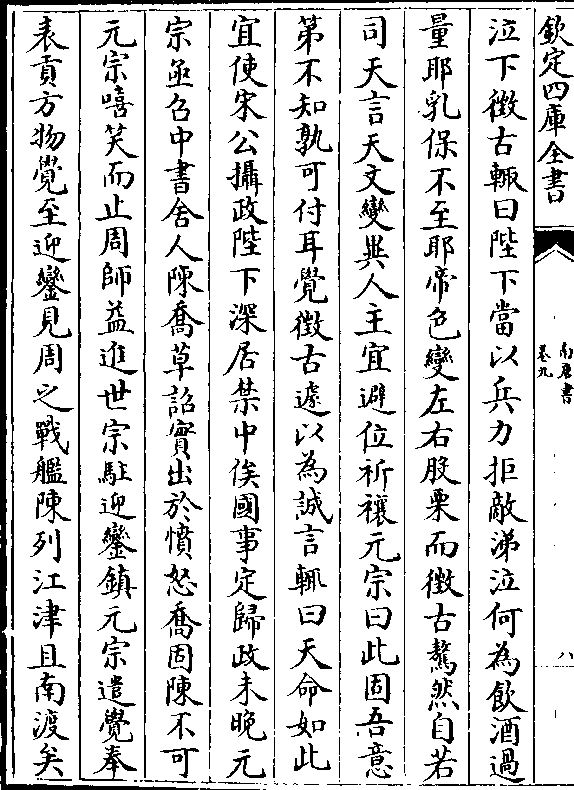 欽定四庫全書
南唐書
卷九
八
泣下徴古輒曰陛下當以兵力拒敵涕泣何為飲酒過
量耶乳保不至耶帝色變左右股栗而徴古驁然自若
司天言天文變異人主宜避位祈禳元宗曰此固吾意
第不知孰可付耳覺徴古遽以為誠言輒曰天命如此
宜使宋公攝政陛下深居禁中俟國事定歸政未晚元
宗亟召中書舍人陳喬草詔實出於憤怒喬固陳不可
元宗嘻笑而止周師益進世宗駐迎鑾鎮元宗遣覺奉
表貢方物覺至迎鑾見周之戰艦陳列江津且南渡矣